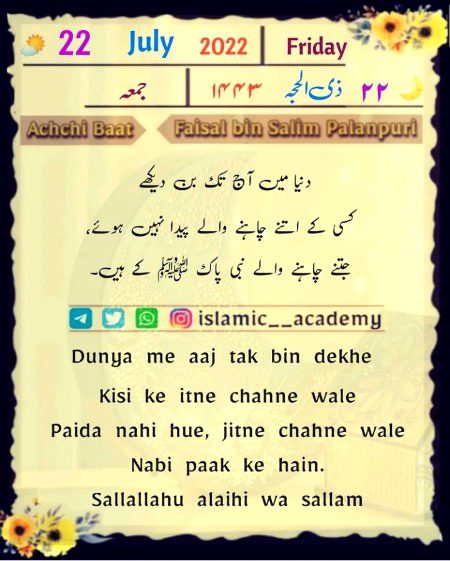 22 July 2022 Friday
۲۲ ذی الحجہ ۱۴۴۳ جمعہ
Achchi Baat Faisal bin Salim Palanpuri
دنیا میں آج تک بن دیکھے
کسی کے اتنے چاہنے والے پیدا نہیں ہوئے،
جتنے چاہنے والے نبی پاک ﷺ کے ہیں۔
islamic__academy
Dunya me aaj tak bin dekhe
Kisi ke itne chahne wale
Paida nahi hue, jitne chahne wale
Nabi paak ke hain.
Sallallahu alaihi wa sallam